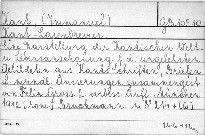 Kant, (Immanuel)
Kant-Laienbrevier.
Eine Darstellung der Kantischen Welt-
u. Lebensanschauung f. d. ungelehrten
Gebildeten aus Kants Schriften, Briefen
u. mündl. Äusserungen zusammengest.
von Felix Gross. 2. verbess. Aufl. München
1912, Bruckmann